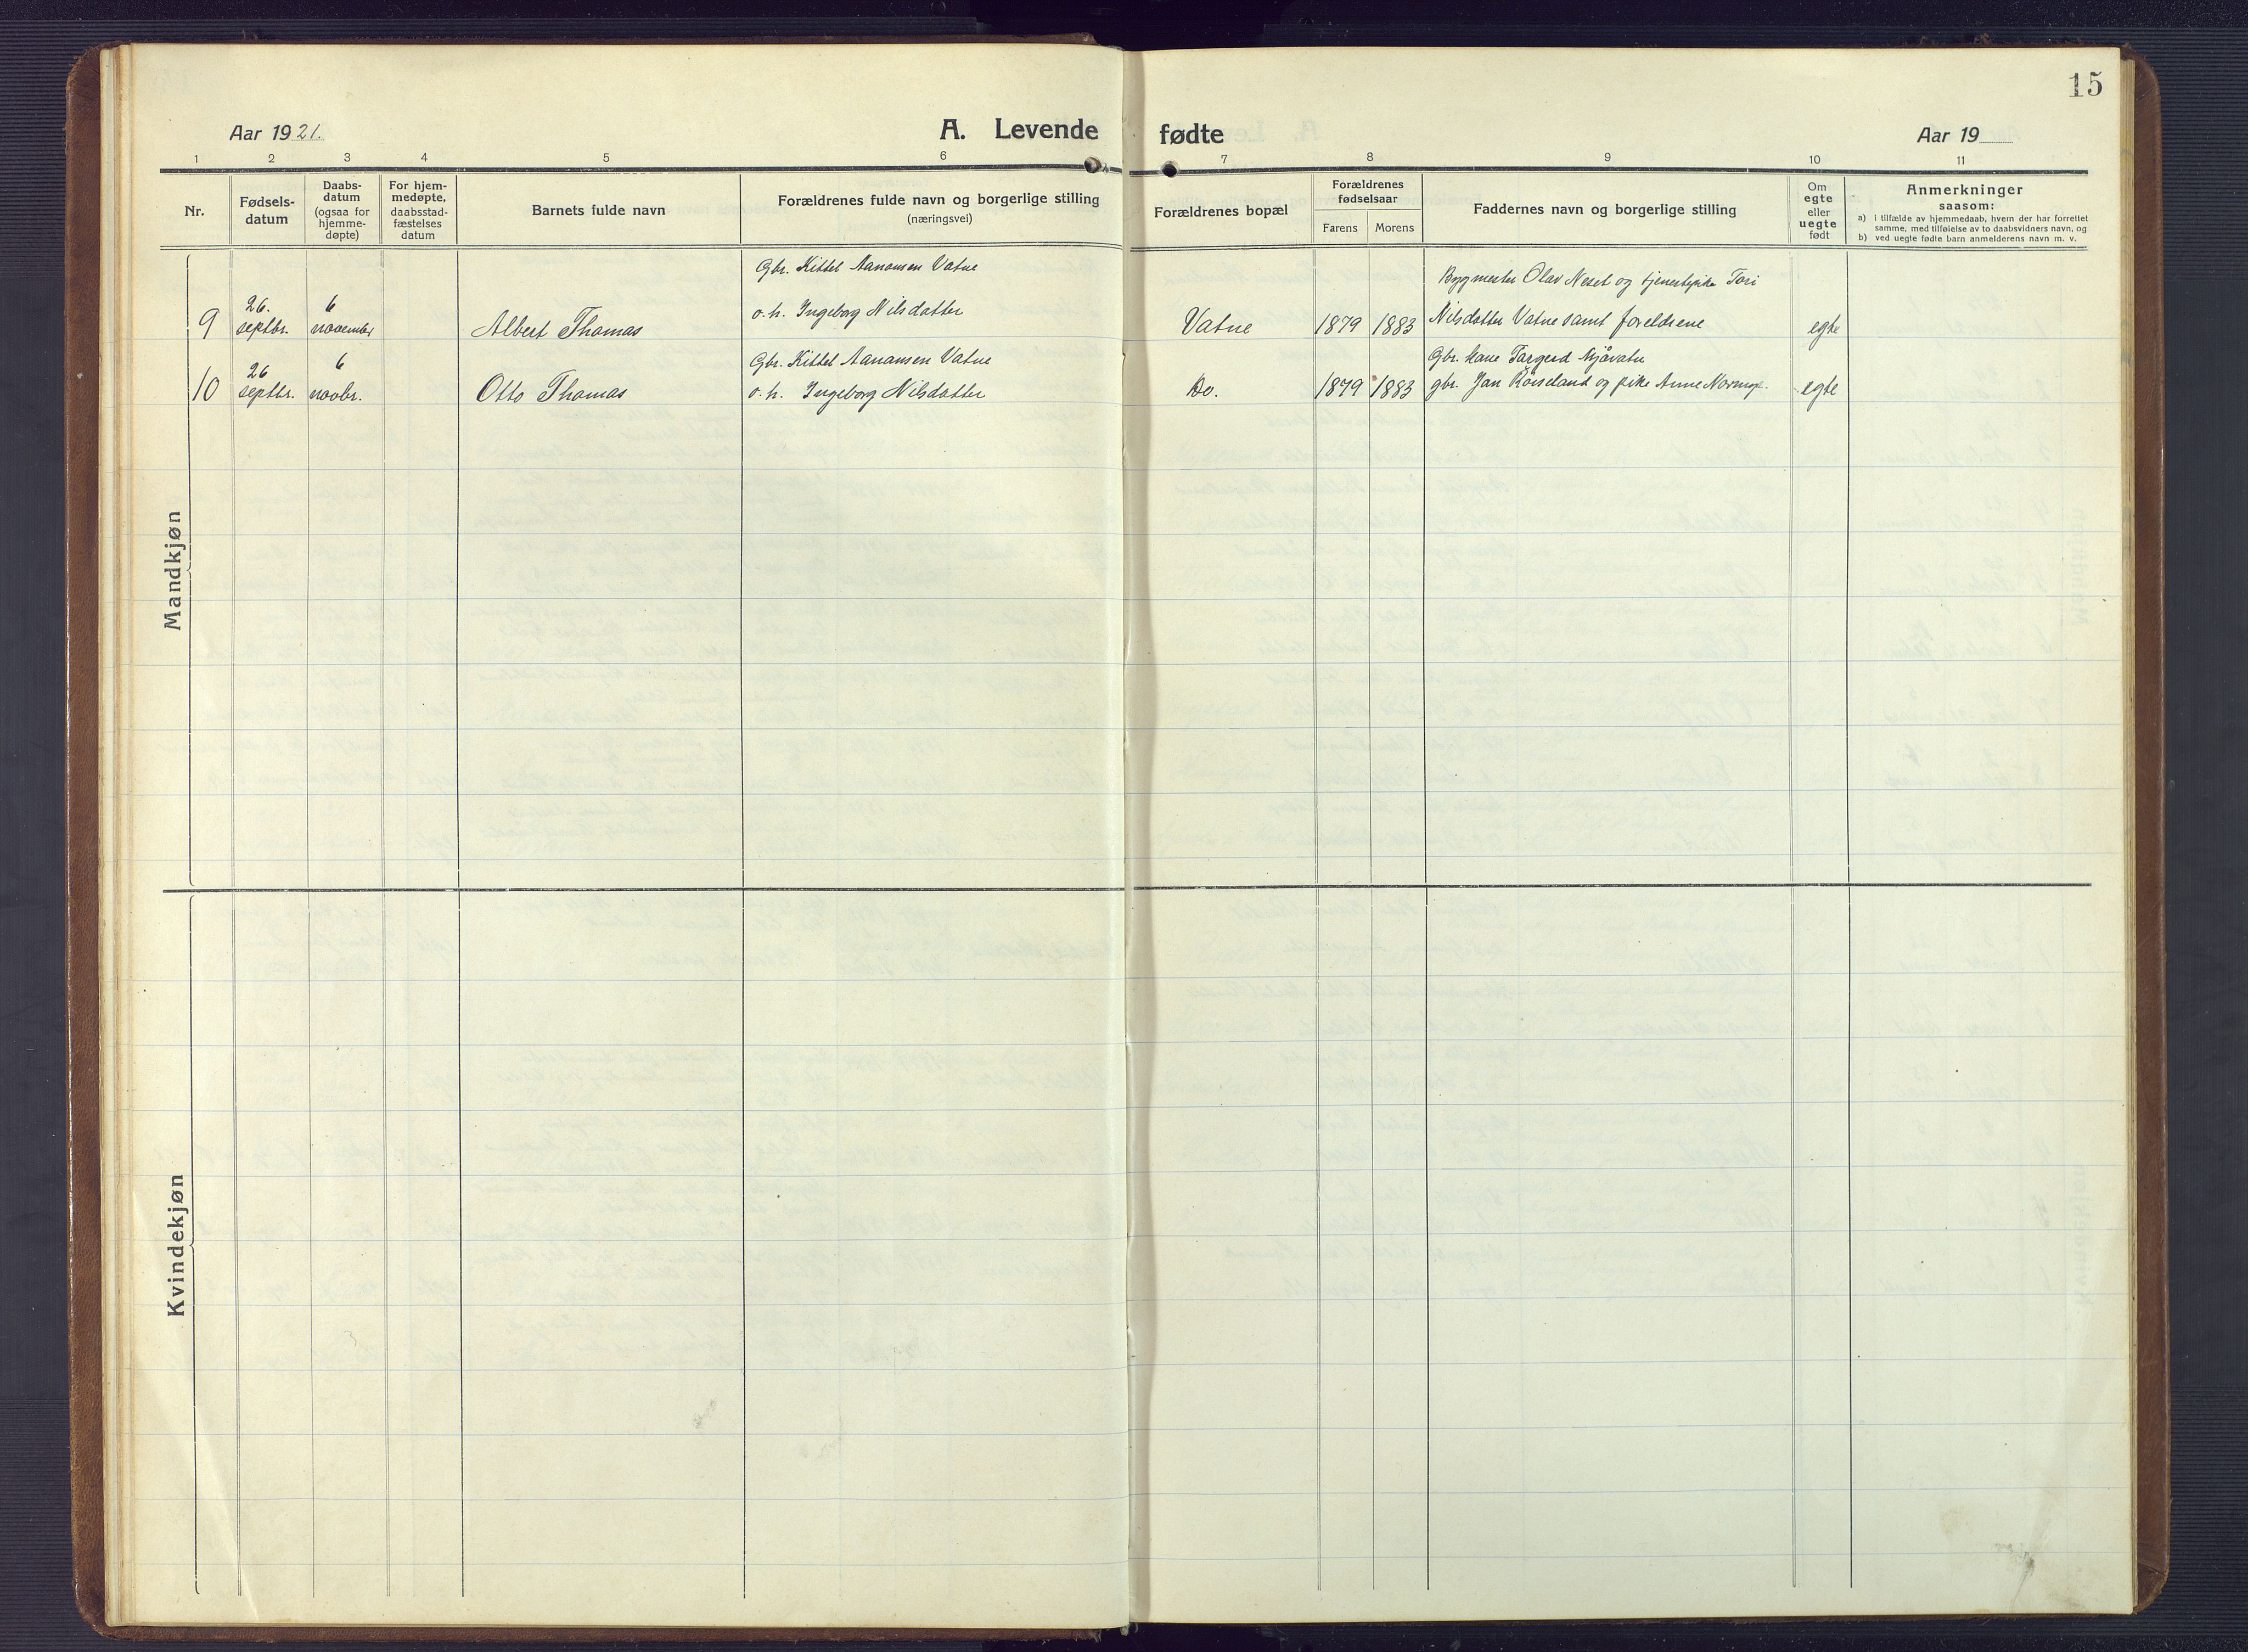 15
Aar 1921.
A. Levende
fødte
Aar 19
1 2 3 4 5 6 7 8 9 10 11
Nr.
Fødsels-
datum
Daabs-
datum
(ogsaa for
hjemme-
døpte)
For hjem-
medøpte,
daabsstad-
fæstelses
datum
Barnets fulde navn
Forældrenes fulde navn og borgerlige stilling
(næringsvei)
Forældrenes bopæl
Forældrenes
fødselsaar
Farens Morens
Faddernes navn og borgerlige stilling
Om
egte
eller
uegte
født
Anmerkninger
saasom:
a) i tilfælde av hjemmedaab, hvem der har forrettet
samme, med tilføielse av to daabsvidners navn, og
b) ved uegte fødte barn anmelderens navn m. v.
Mandkjøn
Gbr. Kittel Aanonsen Vatne
Bygmester Olav Neset og tjenestepike Tori
26. 6
9 septbr. november Albert Thomas o. h. Ingeborg Nilsdatter Vatne 1879 1883 Nilsdatter Vatne samt foreldrene egte
26 6 Gbr. Kittel Aanonsen Vatne Gbr. kone Targerd Mjåvatn
10 septbr. novbr. Otto Thomas o. h. Ingeborg Nilsdatter Do. 1879 1883 gbr. Jan Röiseland og pike Anne egte
Kvindekjøn